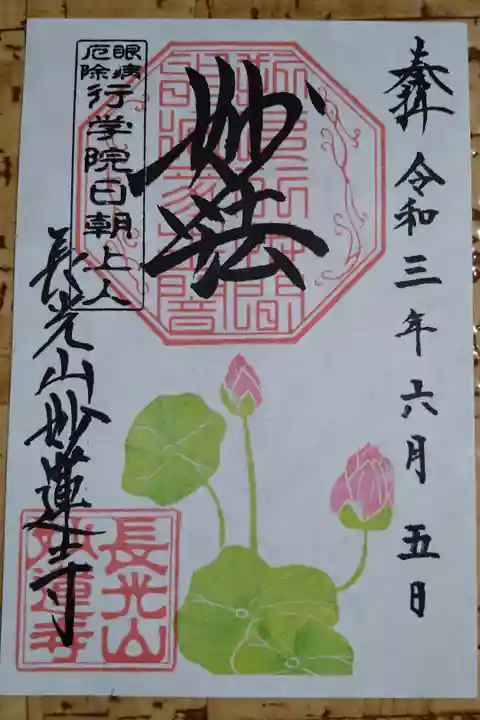 奉拝
令和三年六月五日
妙法
眼病
厄除
行学院日朝上人
長光山妙蓮寺
長光山
妙蓮寺